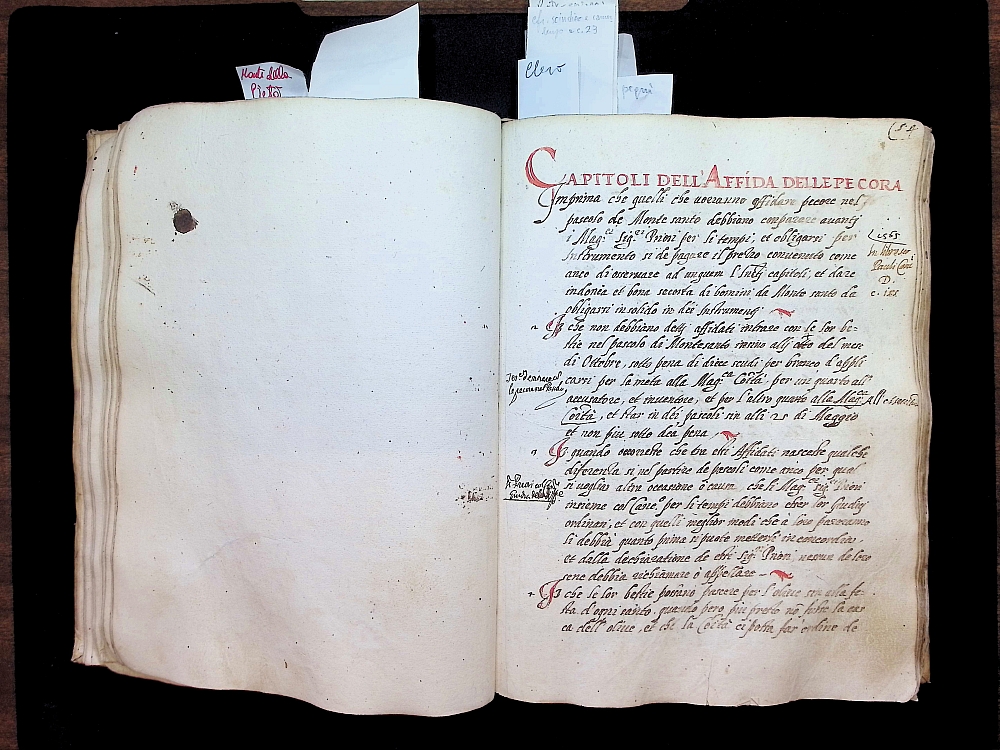 Monti della
Pietà
Clero
pegni
CAPITOLI DELL AFFIDA DELLE PECORA
Imprima che quelli che vorranno affidare pecore nel
pascolo de Monte santo debbiano comparere avanti
i Mag.ci Sig.ri Priori per li tempi, et obligarsi per
Instrumento si de pagare il prezzo convenuto come
anco di osservare ad unguem l'Infri capitoli, et dare
indonea et bona securtà di homini da Monte santo da
obligarsi in solido in dei Instrumenti
1565
c. 
It che non debbiano detti affidati intrare con le lor be=
stie nel pascolo di Montesanto innino alli otto del mese
di Ottobre, sotto pena di diece scudi per branco d'appli
carsi per la metà alla Mag.ca Cortà, per un quarto all'
accusatore, et inventore, et per l'altro quarto alla Mag.ca
Cortà, et star in dei pascoli sin alli 25 di Maggio
et non piu sotto dca pena
It quando occorresse che tra essi Affidati nascesse qualche
differenza si nel partire de pascoli come anco per qual
si voglia altra occasione o causa, che li Mag.ci Sig.ri Priori
insieme col Canc.o per li tempi debbiano esser lor giudici
ordinari, et con quelli meglior modi che a loro pareranno
li debbia quanto prima si puote mettersi in concordia
et dalla dechiaratione de essi Sig.ri Priori nessun de loro
sene debbia richiamare o appellare
It che le lor bestie possano pascere per l'olive sin alla fe=
sta d'ogni santo, quando però piu presto nō fusse la car
ca dell'olive, et che la Cortà ci possa far ordine de